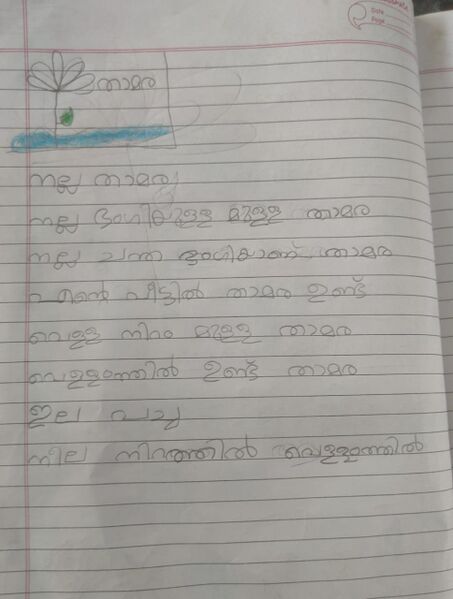 Date
Page
താമര
നല്ല താമര
നല്ല ഭംഗിയുള്ള മുള്ള താമര
നല്ല ചന്ത ഭംഗിയാണ് താമര
എന്റെ വീട്ടിൽ താമര ഉണ്ട്
വെള്ള നിറം മുള്ള താമര
വെള്ളത്തിൽ ഉണ്ട് താമര
ഇല പച്ച
നീല നിറത്തിൽ വെള്ളത്തിൽ